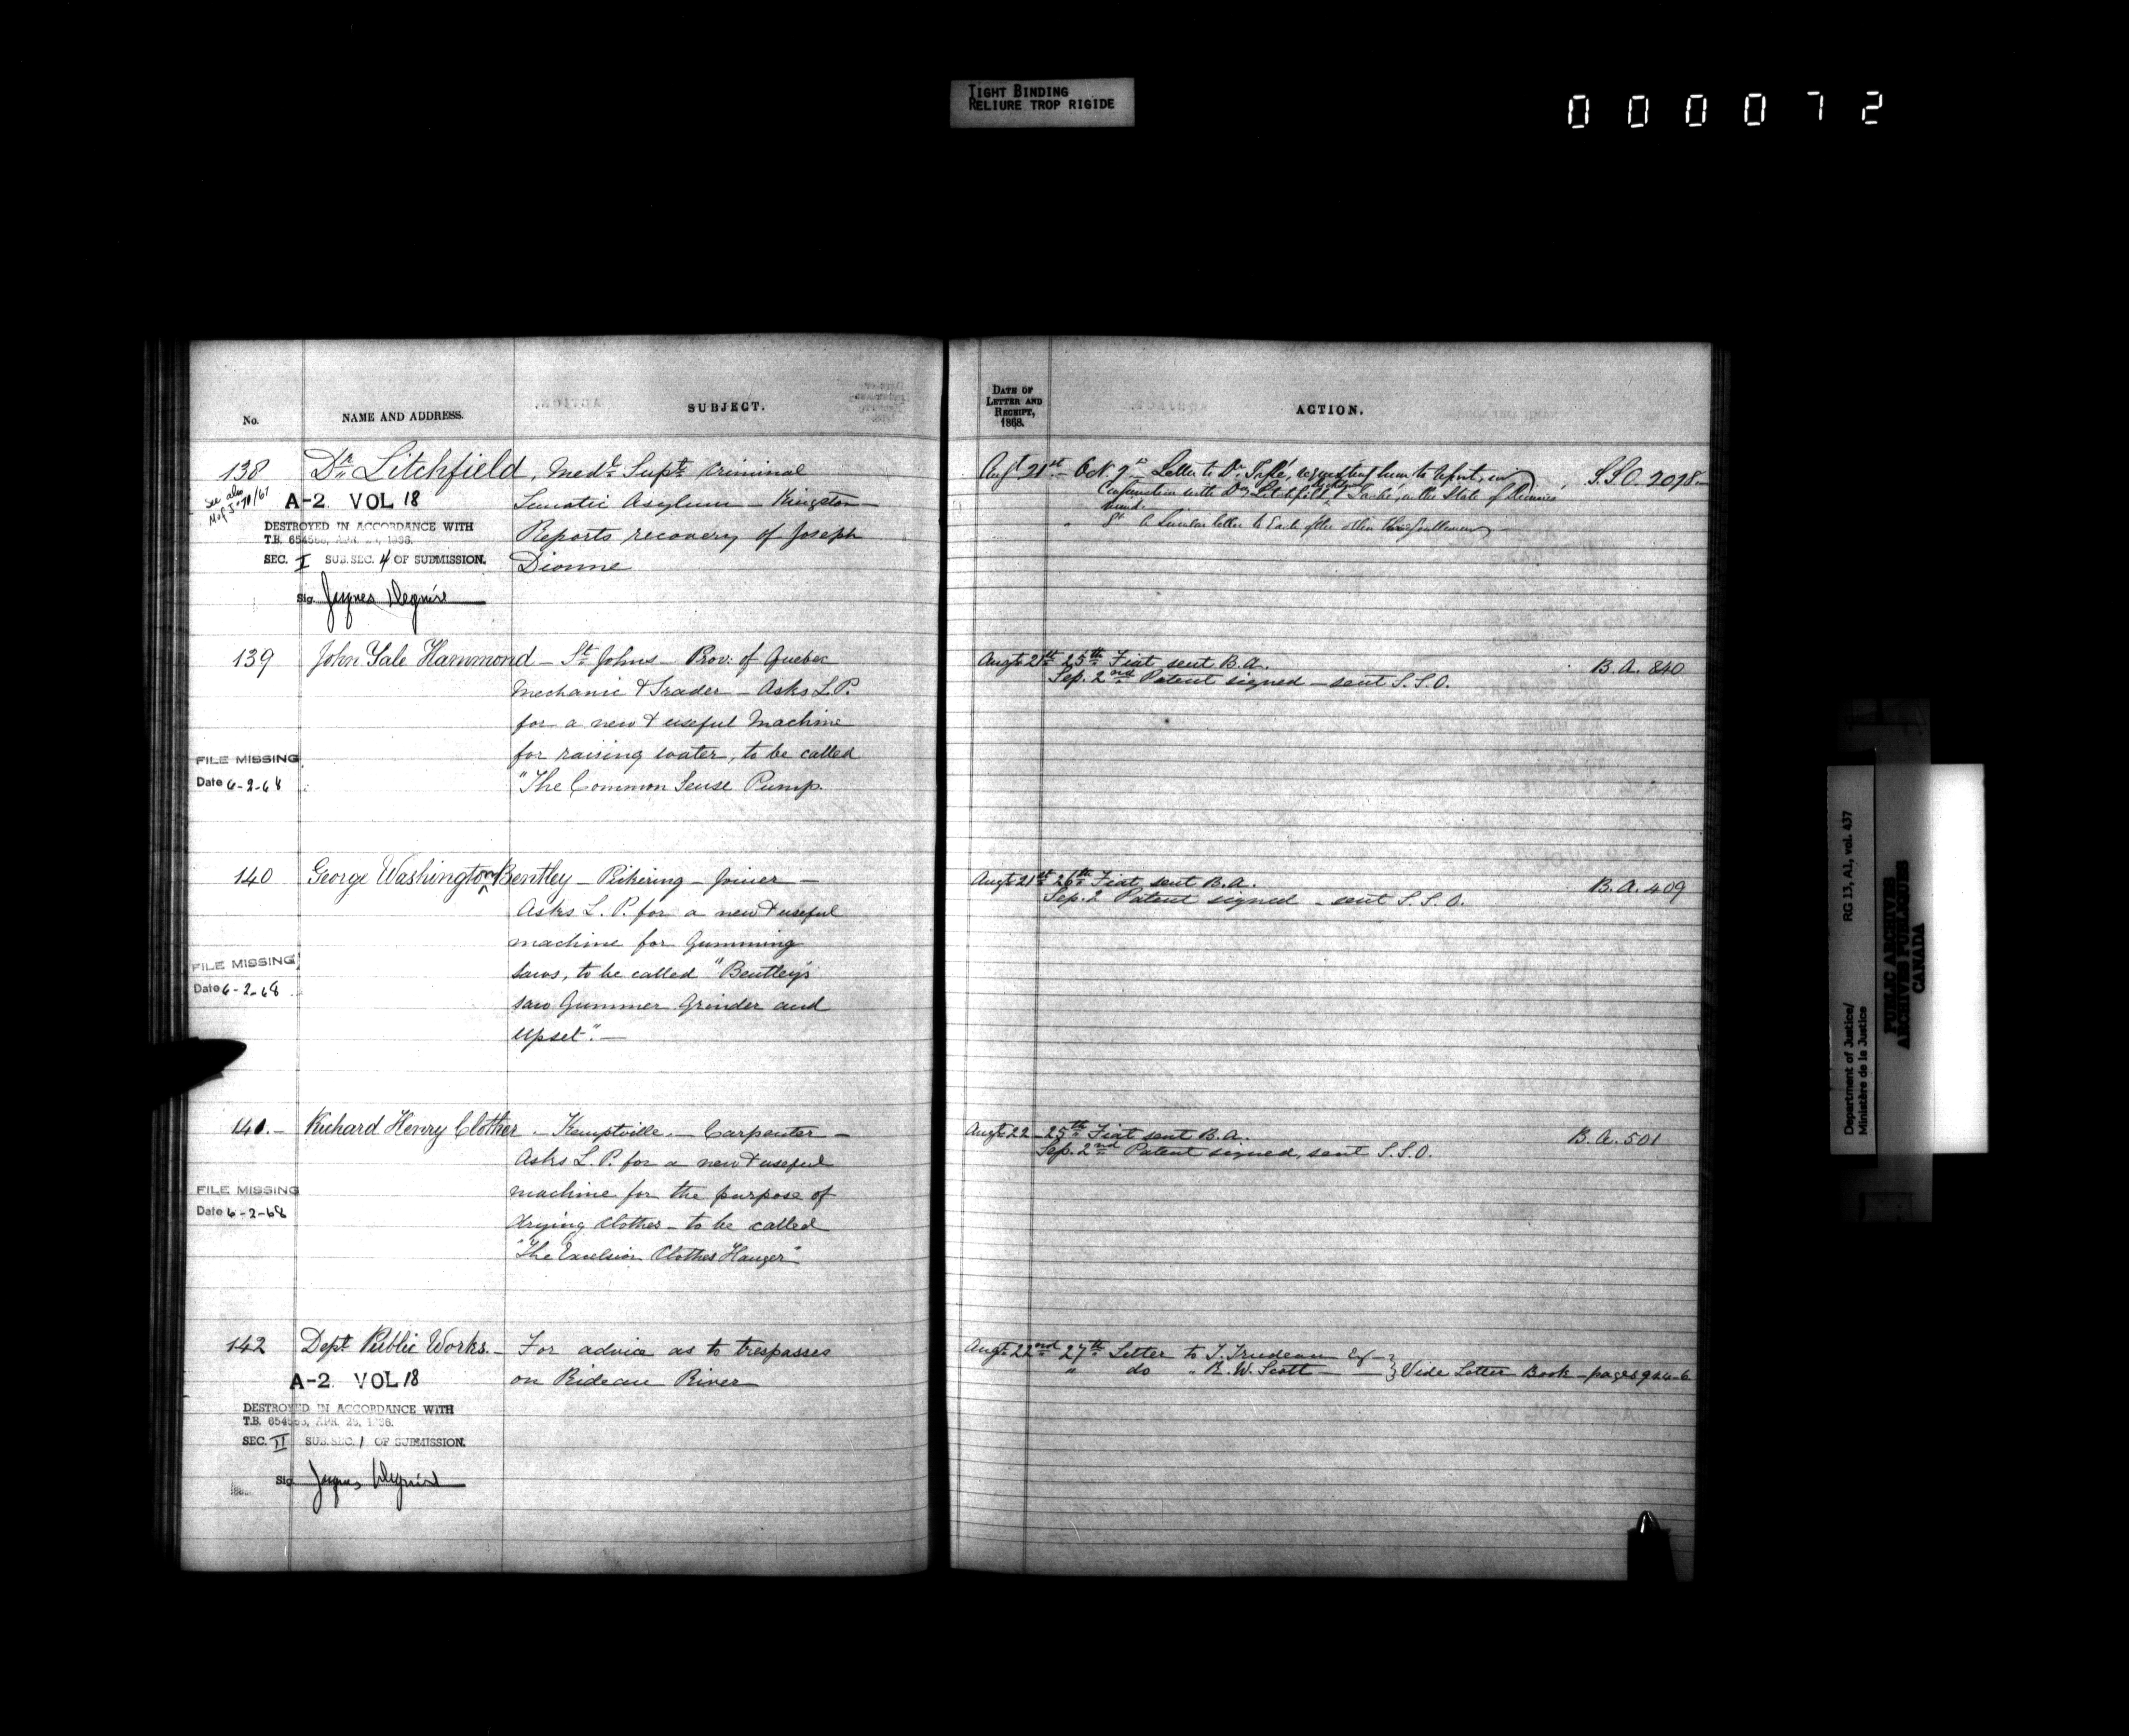 TIGHT BINDING
RELIURE TROP RIGIDE
000072
No.
NAME AND ADDRESS.
SUBJECT.
138 Dr. Litchfield, Medl. Supt. Criminal
See also
A-2 VOL 18
Lunatic Asylum - Kingston -
DESTROYED IN ACCORDANCE WITH
Reports recovery of Joseph
SEC. I SUB. SEC. 4 OF SUBMISSION.
Dionne
Sig.
139 John Yale Hammond - St. Johns - Prov: of Quebec
Mechanic & Trader - Asks L.P.
for a new & useful Machine
for raising water, to be called
FILE MISSING
Date 6-2-68
"The Common Sense Pump.
140 George Washington Bentley - Pickering - Joiner -
Asks L.P. for a new & useful
machine for Gumming
FILE MISSING
Saws, to be called "Bentley's
Date 6-2-68
Saw Gummer Grinder and
Upset". -
141. - Richard Henry Clother - Kemptville - Carpenter -
Asks L.P. for a new & useful
FILE MISSING
machine for the purpose of
Date 6-2-68
drying Clothes - to be called
"The Excelsior Clothes Hanger"
142 Dept. Public Works. - For advice as to trespasses
on Rideau River
A-2 VOL 18
DESTROYED IN ACCORDANCE WITH
SEC. II SUB. SEC. 1 OF SUBMISSION.
Sig.
DATE OF
LETTER AND
RECEIPT,
1868.
ACTION.
Augt 21st - Oct. 9th Letter to Dr. requesting him to report, in S.S.O. 2098
Conjunction with Drs. Litchfield & Taché, on the State of
mind.
" A Similar letter to Each of the other Gentlemen
Augt 21st 25th Fiat sent B.A. B.A. 840
Sep. 2nd Patent signed - sent S.S.O.
Augt 21st 26th Fiat sent B.A. B.A. 409
Sep. 2 Patent signed - sent S.S.O.
Augt 22 - 25th Fiat sent B.A. B.A. 501
Sep. 2nd Patent signed, sent S.S.O.
Augt 22nd 27th Letter to T. Trudeau Esq -
" do " R.W. Scott - } Vide Letter Book - pages 924-6
Department of Justice/
Ministère de la Justice
RG 13, A1, vol. 437
PUBLIC ARCHIVES
ARCHIVES PUBLIQUES
CANADA